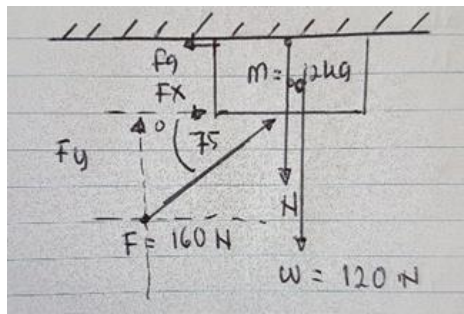 Fg
m = 12kg
Fx
Fy
75
N
F = 160 N
W = 120 N